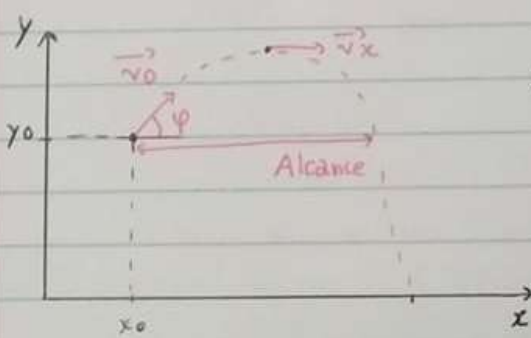 y
v0
vx
y0
φ
Alcance
x0
x